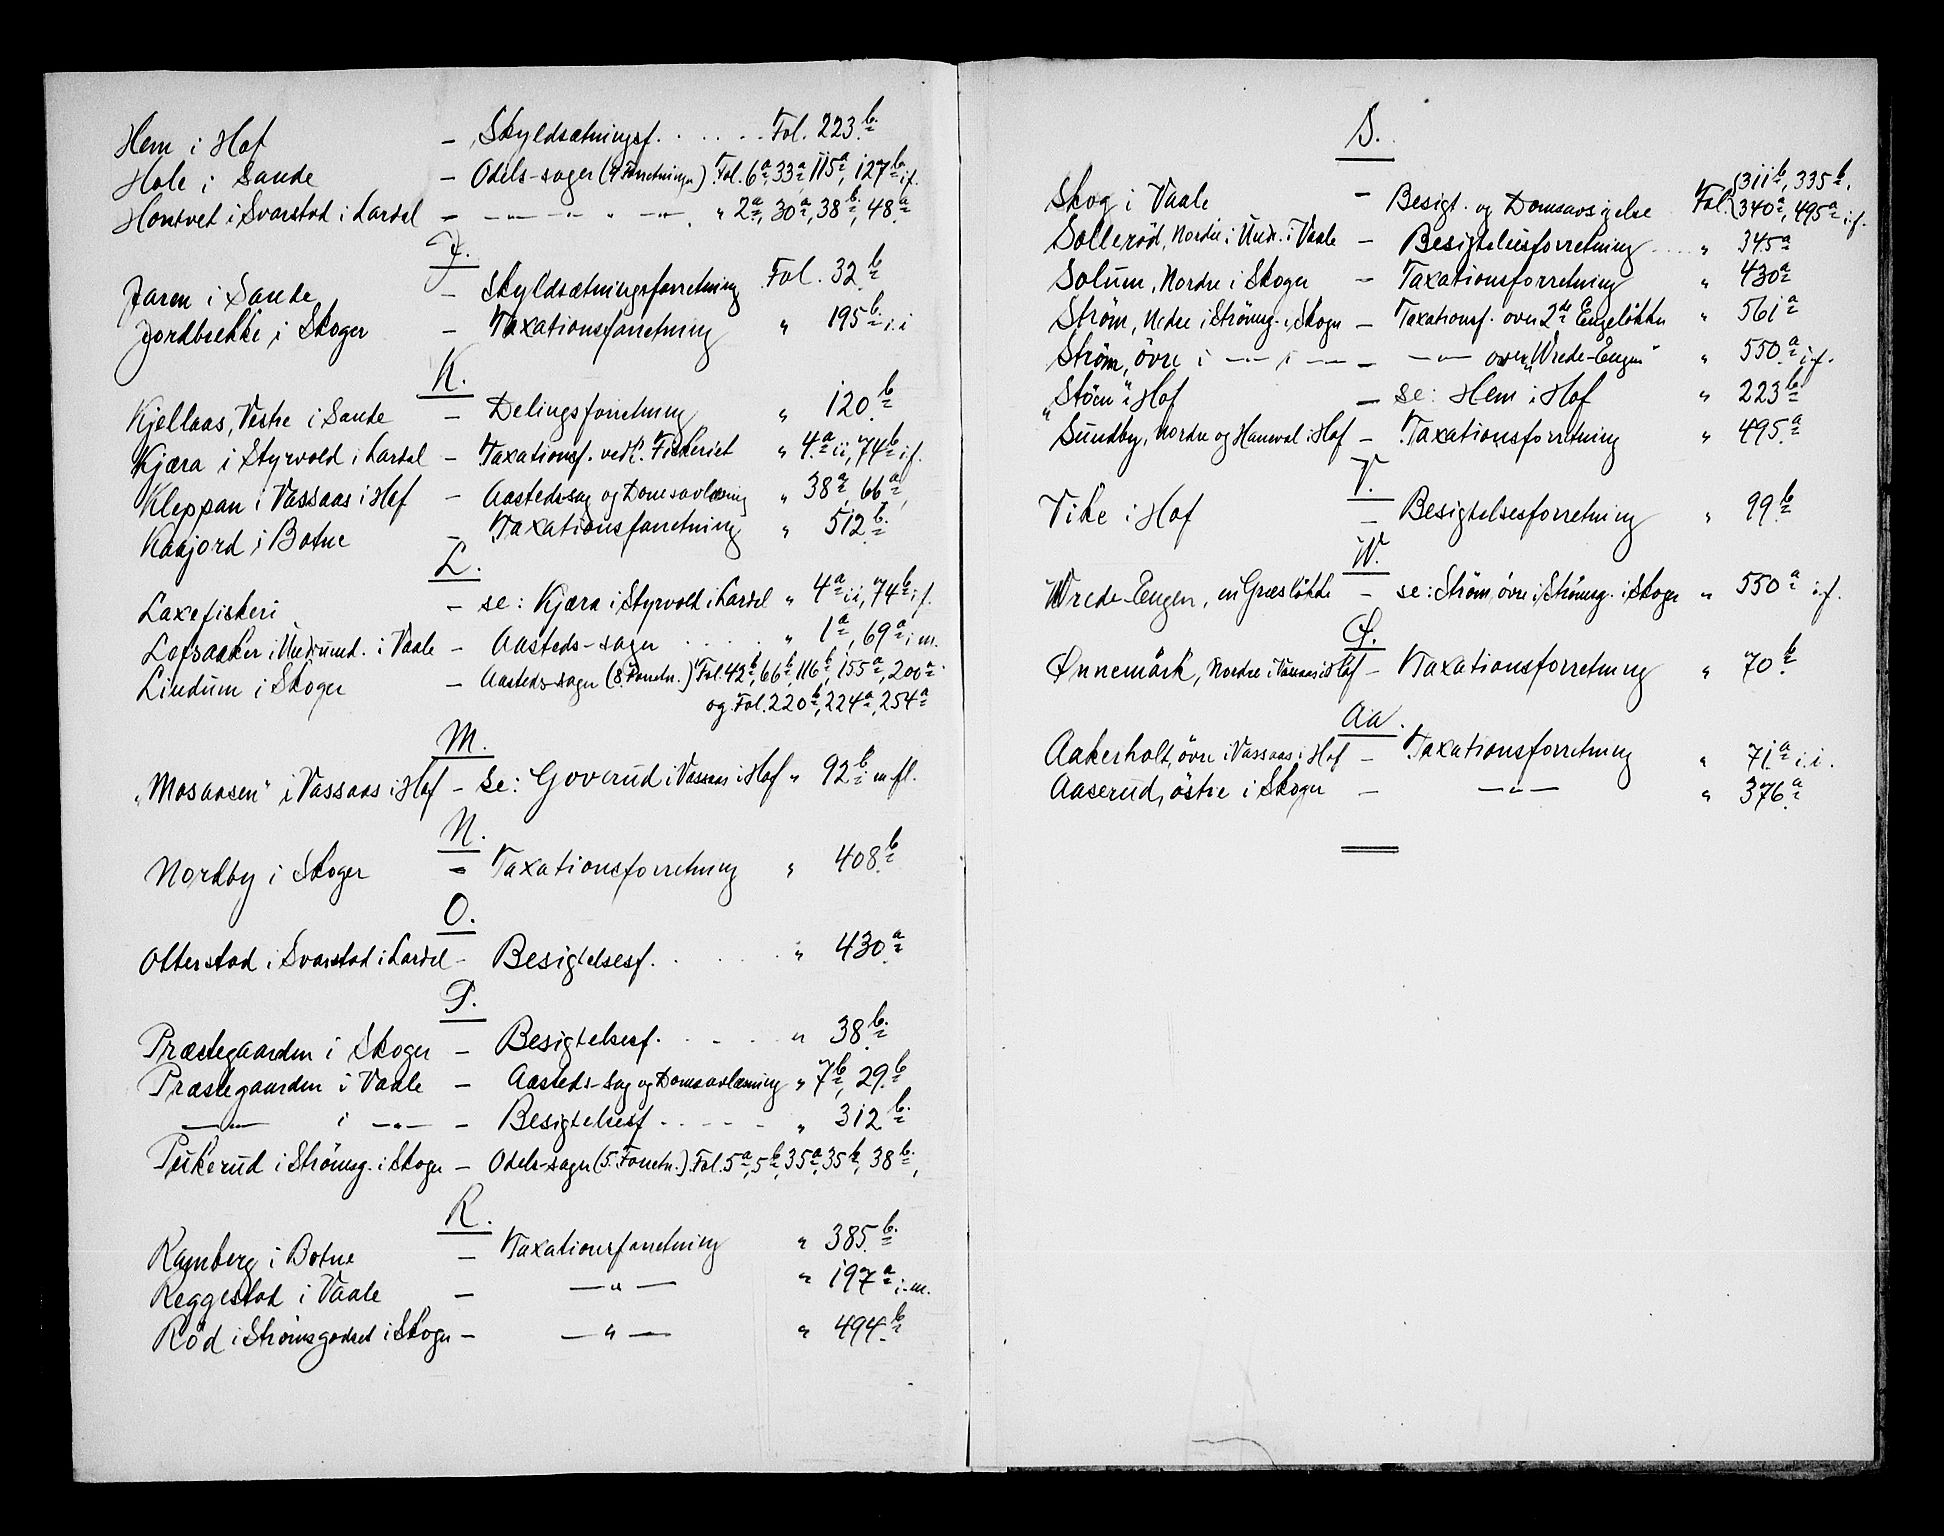 Hem i Hof — Skyldsætningsf. . . . . . Fol. 223 b.
Hole i Sande — Odels-sager (4 Forretninger) Fol. 6a, 33a, 115a, 127b i.f.
Hontvet i Svarstad i Lardal — —„— „ —„— „ 2a, 30a, 38b, 48a
J.
Jaren i Sande — Skyldsætningsforretning Fol. 32 b
Jordbrekke i Skoger — Taxationsforretning „ 195 b i.i
K.
Kjellaas, Vestre i Sande — Delingsforretning „ 120 b
Kjæra i Styrvold i Lardal — Taxationsf. vedk. Fiskeriet „ 4 a i i, 74 b i f.
Kleppan i Vassaas i Hof — Aasteds-sag og Domsavlæsning „ 38 a, 66 a,
Kaajord i Botne — Taxationsforretning „ 512 b.
L.
Laxefiskeri — se: Kjæra i Styrvold i Lardal „ 4 a i i, 74 b i f.
Lofsaaker i Undrumd. i Vaale — Aasteds-sager . . . . . „ 1 a, 69 a i m.
Lindum i Skoger — Aasteds-sager (8 Forretn.) Fol. 42 b, 66 b, 116 b, 155 a, 200 a.
og Fol. 220 b, 224 a, 254 a
M.
„Mosaasen" i Vassaas i Hof — se: Goverud i Vassaas i Hof „ 92 b i m fl.
N.
Nordby i Skoger — Taxationsforretning „ 408 b
O.
Otterstad i Svarstad i Lardal — Besigtelsesf. . . . . . „ 430 a
P.
Præstegaarden i Skoger — Besigtelsesf. . . . . „ 38 b.
Præstegaarden i Vaale — Aasteds-sag og Domsavlæsning „ 7 b, 29 b
—„— i —„— — Besigtelsesf . . . . . „ 312 b.
Pukerud i Strömsg. i Skoger — Odels-sager (5. Forretn.) Fol. 5 a, 5 b, 35 a, 35 b, 38 b.,
R.
Ramberg i Botne — Taxationsforretning „ 385 b.
Reggestad i Vaale — —„— „ 197 a i. m.
Röd i Strömsgodset i Skoger — —„— „ 494 b
S.
Skog i Vaale — Besigt. og Domsavsigelse Fol. {311 b, 335 b,
{340 a, 495 a i f.
Sollerød, Nordre i Und. i Vaale — Besigtelsesforretning . . . „ 345 a
Solum, Nordre i Skoger — Taxationsforretning „ 430 a
Ström, Nedre i Strömsg. i Skoger — Taxationsf. over 2de Engelökker „ 561 a
Ström, övre i —„— i —„— — —„— over „Wrede-Engen" „ 550 a i f.
„Stöen" i Hof — se: Hem i Hof „ 223 b
Sundby, Nordre og Haneval i Hof — Taxationsforretning „ 495 a
V.
Vike i Hof — Besigtelsesforretning „ 99 b
W.
Wrede-Engen, en Græslökke — se: Ström, övre i Strömsg. i Skoger „ 550 a i f.
Ø.
Ønnemärk, Nordre i Vassaas i Hof — Taxationsforretning „ 70 b
Aa.
Aakerholt, övre i Vassaas i Hof — Taxationsforretning „ 71 a i. i.
Aaserud, östre i Skoger — —„— „ 376 a